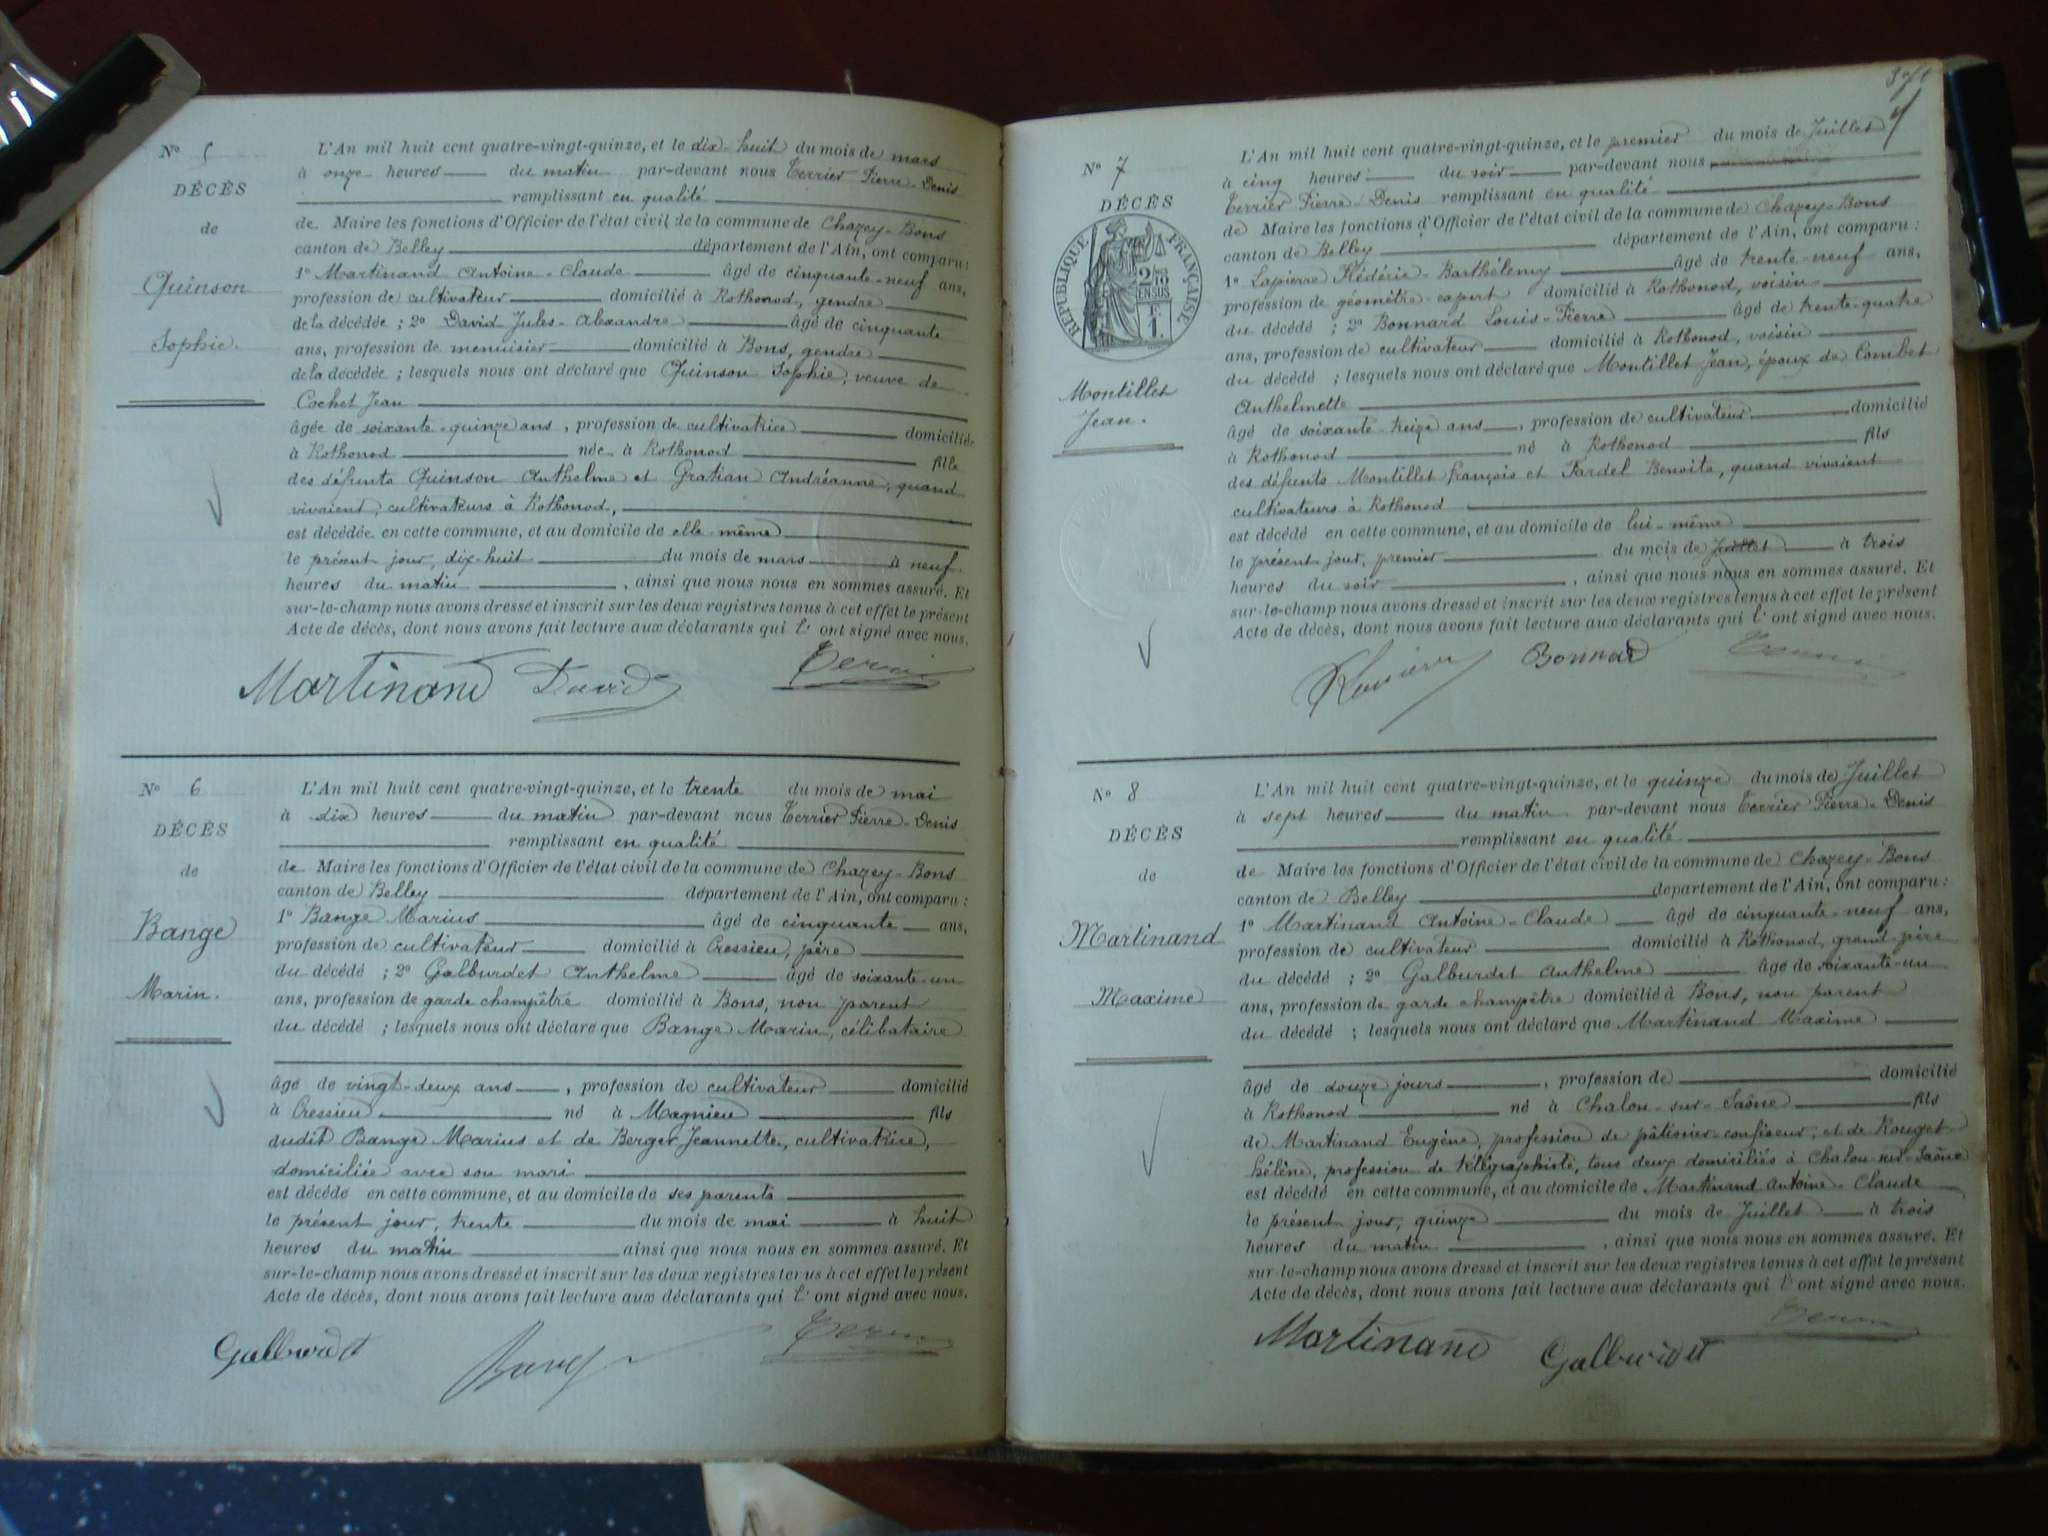 Nº 5
DÉCÈS
de
Quinson
Sophie.
L'An mil huit cent quatre-vingt-quinze, et le dix-huit du mois de mars
à onze heures du matin par-devant nous Terrier Pierre-Denis
remplissant en qualité
de Maire les fonctions d'Officier de l'état civil de la commune de Chazey-Bons
canton de Belley département de l'Ain, ont comparu:
1º Martinand Antoine-Claude âgé de cinquante-neuf ans,
profession de cultivateur domicilié à Rothonod, gendre
de la décédée ; 2º David Jules-Alexandre âgé de cinquante
ans, profession de menuisier domicilié à Bons, gendre
de la décédée ; lesquels nous ont déclaré que Quinson Sophie, veuve de
Cochet Jean
âgée de soixante-quinze ans, profession de cultivatrice domiciliée
à Rothonod née à Rothonod fille
des défunts Quinson Anthelme et Gratian Andréanne, quand
vivaient, cultivateurs à Rothonod,
est décédée en cette commune, et au domicile de elle-même
le présent jour, dix-huit du mois de mars à neuf
heures du matin, ainsi que nous nous en sommes assuré. Et
sur-le-champ nous avons dressé et inscrit sur les deux registres tenus à cet effet le présent
Acte de décès, dont nous avons fait lecture aux déclarants qui l' ont signé avec nous.
Martinand David Terrier
Nº 6
DÉCÈS
de
Bange
Marin.
L'An mil huit cent quatre-vingt-quinze, et le trente du mois de mai
à dix heures du matin par-devant nous Terrier Pierre-Denis
remplissant en qualité
de Maire les fonctions d'Officier de l'état civil de la commune de Chazey-Bons
canton de Belley département de l'Ain, ont comparu :
1º Bange Marius âgé de cinquante ans,
profession de cultivateur domicilié à Cressieu, père
du décédé ; 2º Galburdet Anthelme âgé de soixante-un
ans, profession de garde champêtre domicilié à Bons, non parent
du décédé ; lesquels nous ont déclaré que Bange Marin, célibataire
âgé de vingt-deux ans, profession de cultivateur domicilié
à Cressieu né à Magnieu fils
dudit Bange Marius et de Berger Jeannette, cultivatrice,
domiciliée avec son mari
est décédé en cette commune, et au domicile de ses parents
le présent jour, trente du mois de mai à huit
heures du matin ainsi que nous nous en sommes assuré. Et
sur-le-champ nous avons dressé et inscrit sur les deux registres tenus à cet effet le présent
Acte de décès, dont nous avons fait lecture aux déclarants qui l' ont signé avec nous.
Galburdet Bange Terrier
Nº 7
DÉCÈS
RÉPUBLIQUE FRANÇAISE
2/10 EN SUS
F. 1.
Montillet
Jean.
L'An mil huit cent quatre-vingt-quinze, et le premier du mois de Juillet
à cinq heures du soir par-devant nous
Terrier Pierre-Denis remplissant en qualité
de Maire les fonctions d'Officier de l'état civil de la commune de Chazey-Bons
canton de Belley département de l'Ain, ont comparu :
1º Lapierre Fédéric-Barthélemy âgé de trente-neuf ans,
profession de géomètre-expert domicilié à Rothonod, voisin
du décédé ; 2º Bonnard Louis-Pierre âgé de trente-quatre
ans, profession de cultivateur domicilié à Rothonod, voisin
du décédé ; lesquels nous ont déclaré que Montillet Jean, époux de Combet
Anthelmette
âgé de soixante-treize ans, profession de cultivateur domicilié
à Rothonod né à Rothonod fils
des défunts Montillet François et Fardel Benoite, quand vivaient
cultivateurs à Rothonod
est décédé en cette commune, et au domicile de lui-même
le présent jour, premier du mois de Juillet à trois
heures du soir, ainsi que nous nous en sommes assuré. Et
sur-le-champ nous avons dressé et inscrit sur les deux registres tenus à cet effet le présent
Acte de décès, dont nous avons fait lecture aux déclarants qui l' ont signé avec nous.
Bonnard Terrier
Nº 8
DÉCÈS
de
Martinand
Maxime
L'An mil huit cent quatre-vingt-quinze, et le quinze du mois de Juillet
à sept heures du matin par-devant nous Terrier Pierre-Denis
remplissant en qualité
de Maire les fonctions d'Officier de l'état civil de la commune de Chazey-Bons
canton de Belley département de l'Ain, ont comparu :
1º Martinand Antoine-Claude âgé de cinquante-neuf ans,
profession de cultivateur domicilié à Rothonod, grand-père
du décédé ; 2º Galburdet Anthelme âgé de soixante-un
ans, profession de garde champêtre domicilié à Bons, non parent
du décédé ; lesquels nous ont déclaré que Martinand Maxime
âgé de douze jours, profession de domicilié
à Rothonod né à Chalon-sur-Saône fils
de Martinand Eugène, profession de pâtissier-confiseur, et de Rouget
Hélène, profession de télégraphiste, tous deux domiciliés à Chalon-sur-Saône
est décédé en cette commune, et au domicile de Martinand Antoine-Claude
le présent jour, quinze du mois de Juillet à trois
heures du matin, ainsi que nous nous en sommes assuré. Et
sur-le-champ nous avons dressé et inscrit sur les deux registres tenus à cet effet le présent
Acte de décès, dont nous avons fait lecture aux déclarants qui l' ont signé avec nous.
Martinand Galburdet Terrier